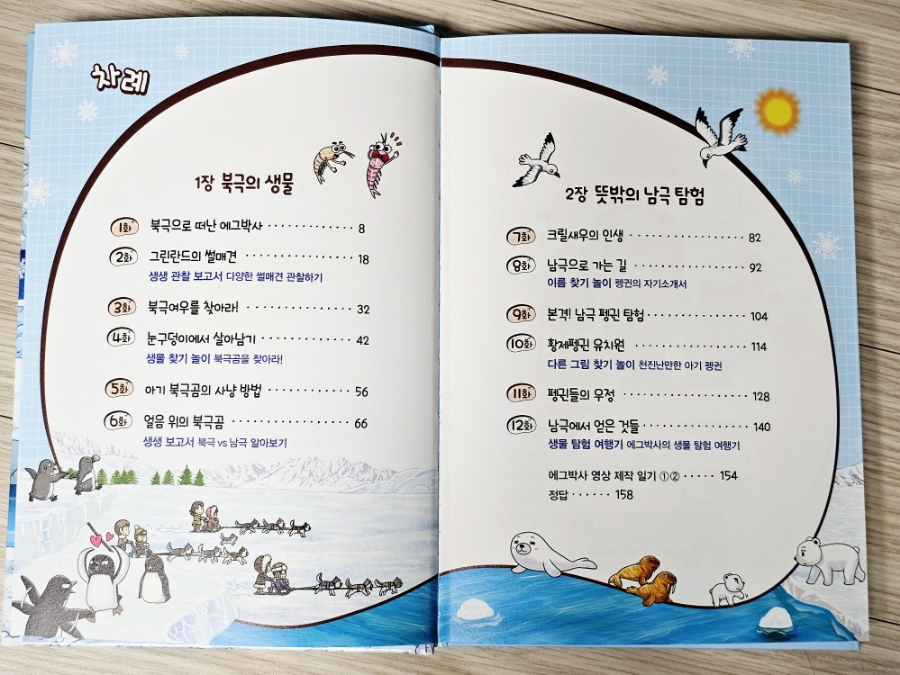 차례
1장 북극의 생물
1화 북극으로 떠난 에그박사 ············ 8
2화 그린란드의 썰매견 ············ 18
생생 관찰 보고서 다양한 썰매견 관찰하기
3화 북극여우를 찾아라! ············ 32
4화 눈구덩이에서 살아남기 ············ 42
생물 찾기 놀이 북극곰을 찾아라!
5화 아기 북극곰의 사냥 방법 ············ 56
6화 얼음 위의 북극곰 ············ 66
생생 보고서 북극 vs 남극 알아보기
2장 뜻밖의 남극 탐험
7화 크릴새우의 인생 ············ 82
8화 남극으로 가는 길 ············ 92
이름 찾기 놀이 펭귄의 자기소개서
9화 본격! 남극 펭귄 탐험 ············ 104
10화 황제펭귄 유치원 ············ 114
다른 그림 찾기 놀이 천진난만한 아기 펭귄
11화 펭귄들의 우정 ············ 128
12화 남극에서 얻은 것들 ············ 140
생물 탐험 여행기 에그박사의 생물 탐험 여행기
에그박사 영상 제작 일기 ①② ······ 154
정답 ······ 158